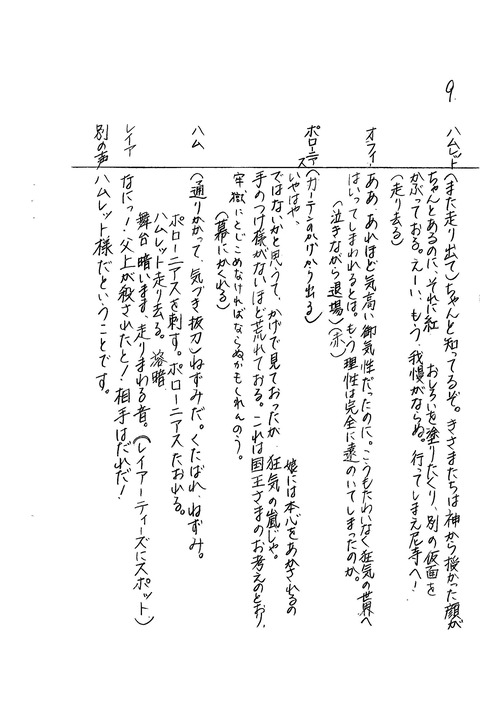 9.
ハムレット（また走り出て）ちゃんと知ってるぞ。きさまたちは神から授かった顔が
ちゃんとあるのに、それに紅 おしろいを塗りたくり、別の仮面を
かぶっておる。えーい、もう、我慢がならぬ。行ってしまえ尼寺へ！
（走り去る）
オフィ ああ、あれほど気高い御気性だったのに。こうもたわいなく狂気の世界へ
はいってしまわれるとは。もう理性は完全に遠のいてしまったのか。
（泣きながら退場）
ポローニアス（カーテンのかげから出る）
いやはや、 娘には本心をあかされるの
ではないかと思うて、かげで見ておったが、狂気の嵐じゃ。
手のつけ様がないほど荒れておる。これは国王さまのお考えのとおり、
牢獄にとじこめなければならぬかもしれんのう。
（幕にかくれる）
ハム （通りかかって、気づき抜刀）ねずみだ。くたばれ、ねずみ。
ポローニアスを刺す。ポローニアスたおれる。
ハムレット走り去る。溶暗
舞台暗います、走りまわる音。（レイアーティーズにスポット）
レイア なにっ！父上が殺されたと！相手はだれだ！
別の声 ハムレット様だということです。